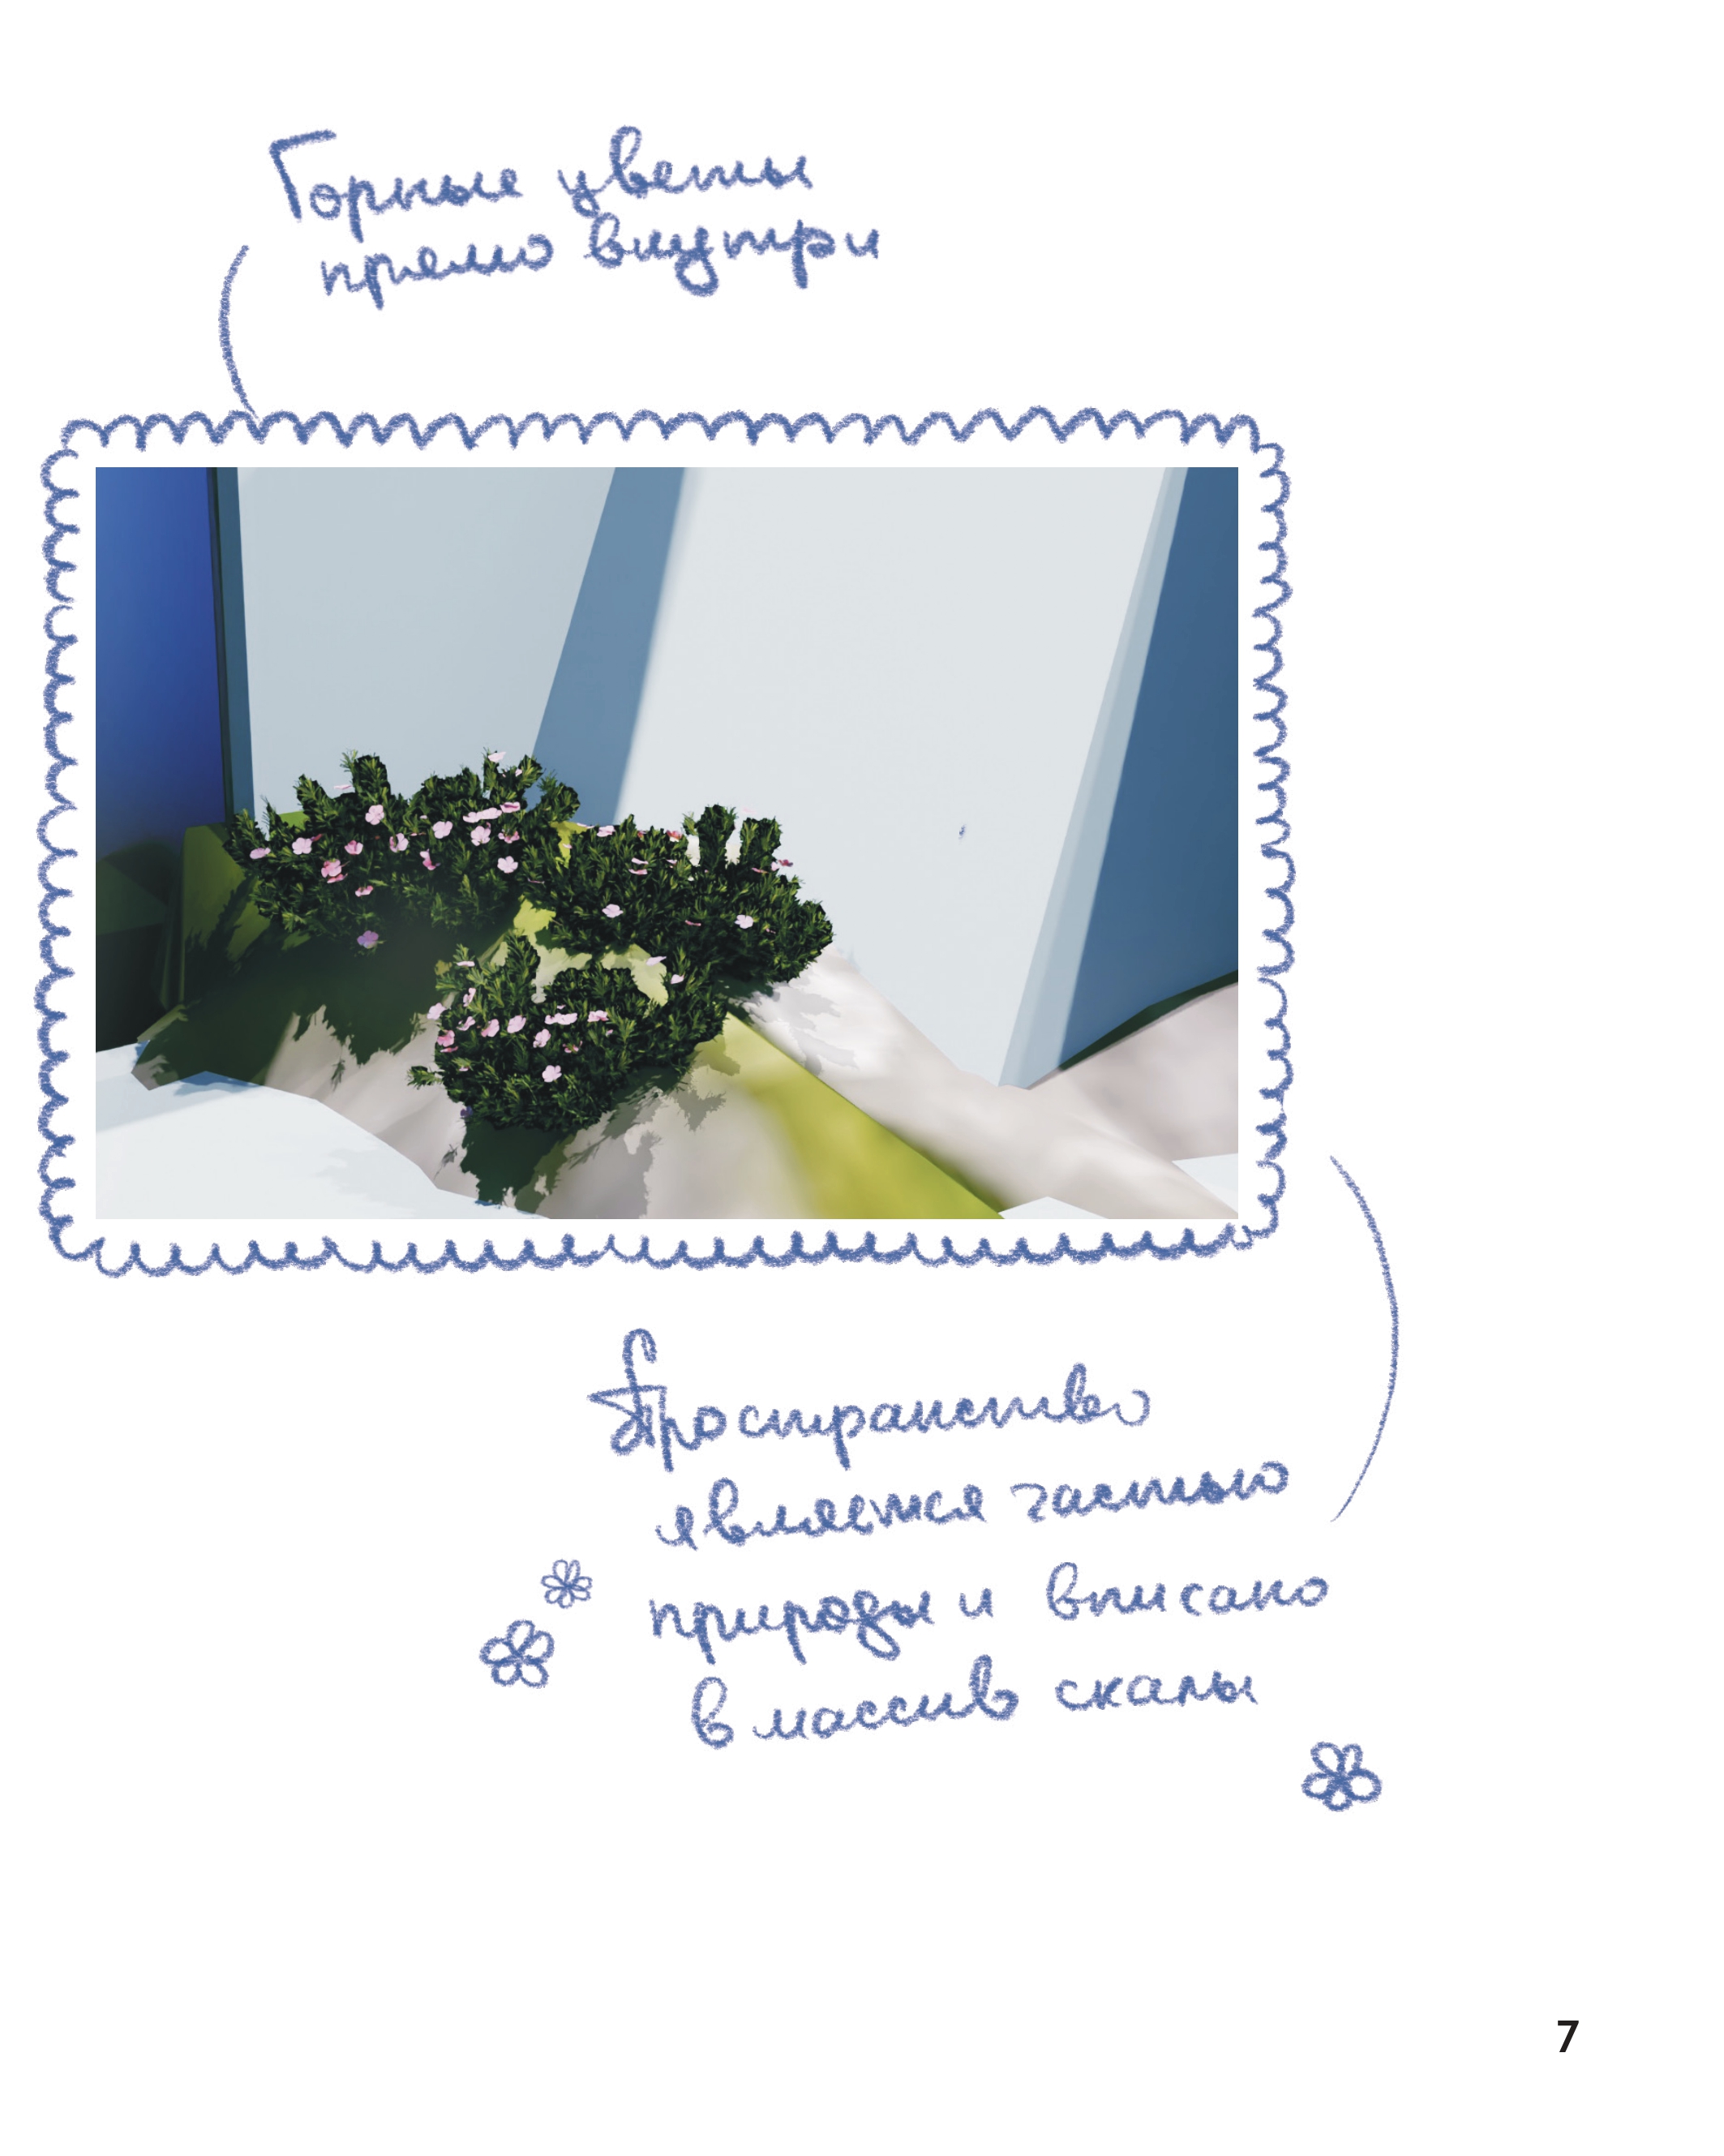 Горные цветы
прямо внутри
Пространство
является частью
природы и вписано
в массив скалы
7